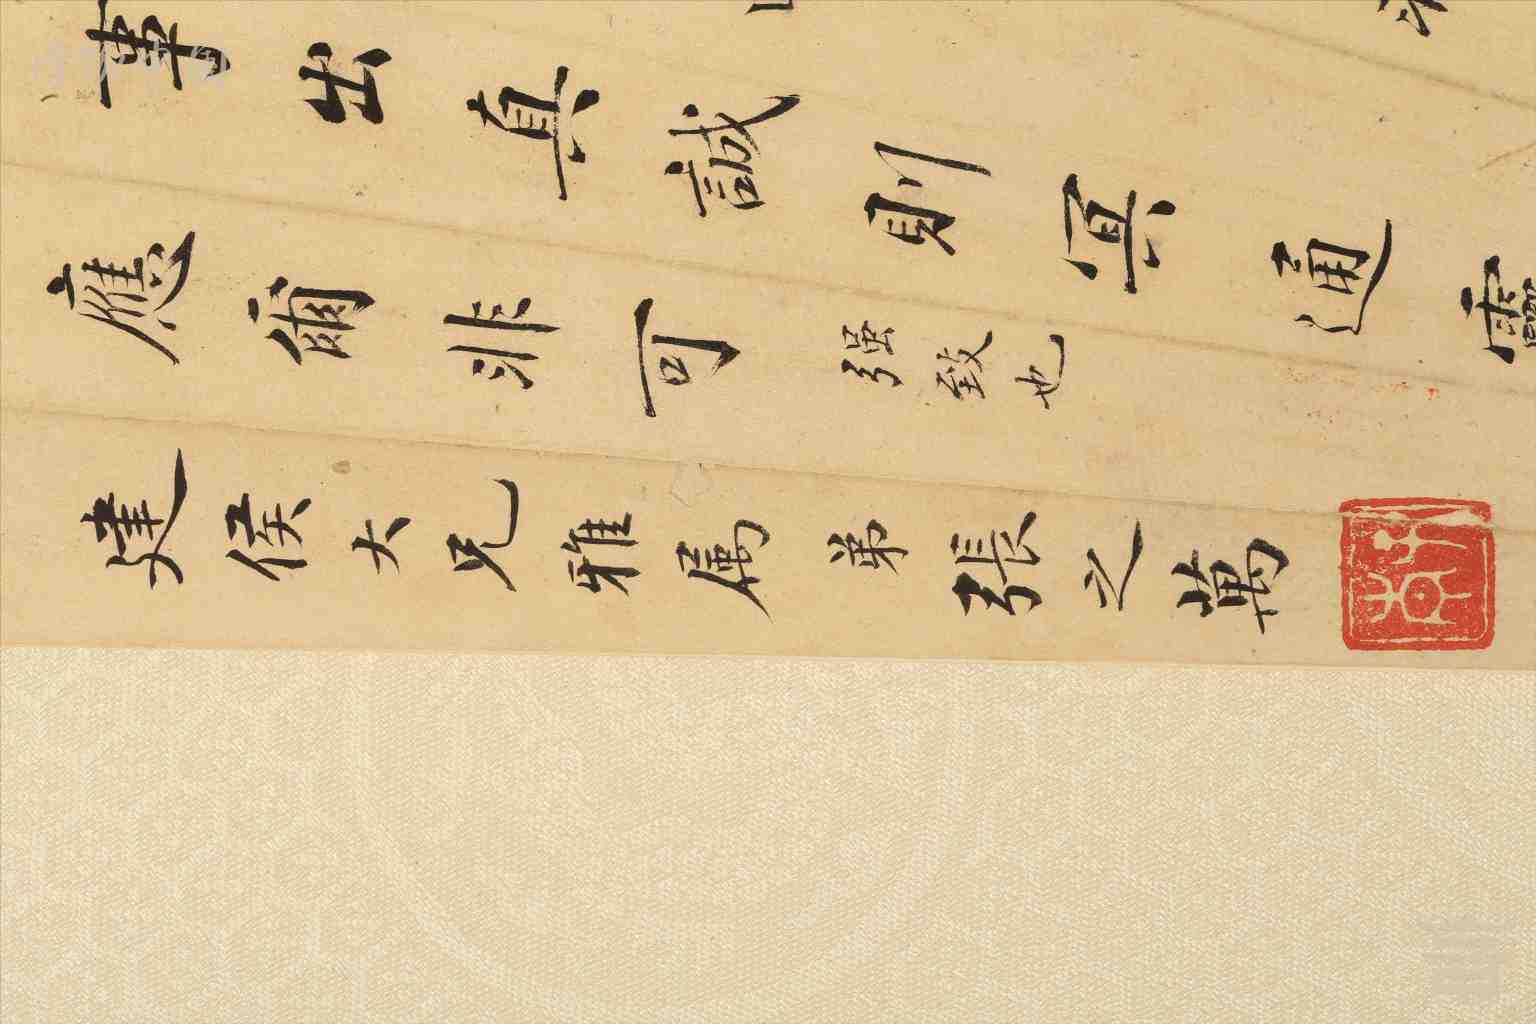 事出真誠則冥通靈
應爾非可强致也
建侯大兄雅屬弟張之萬